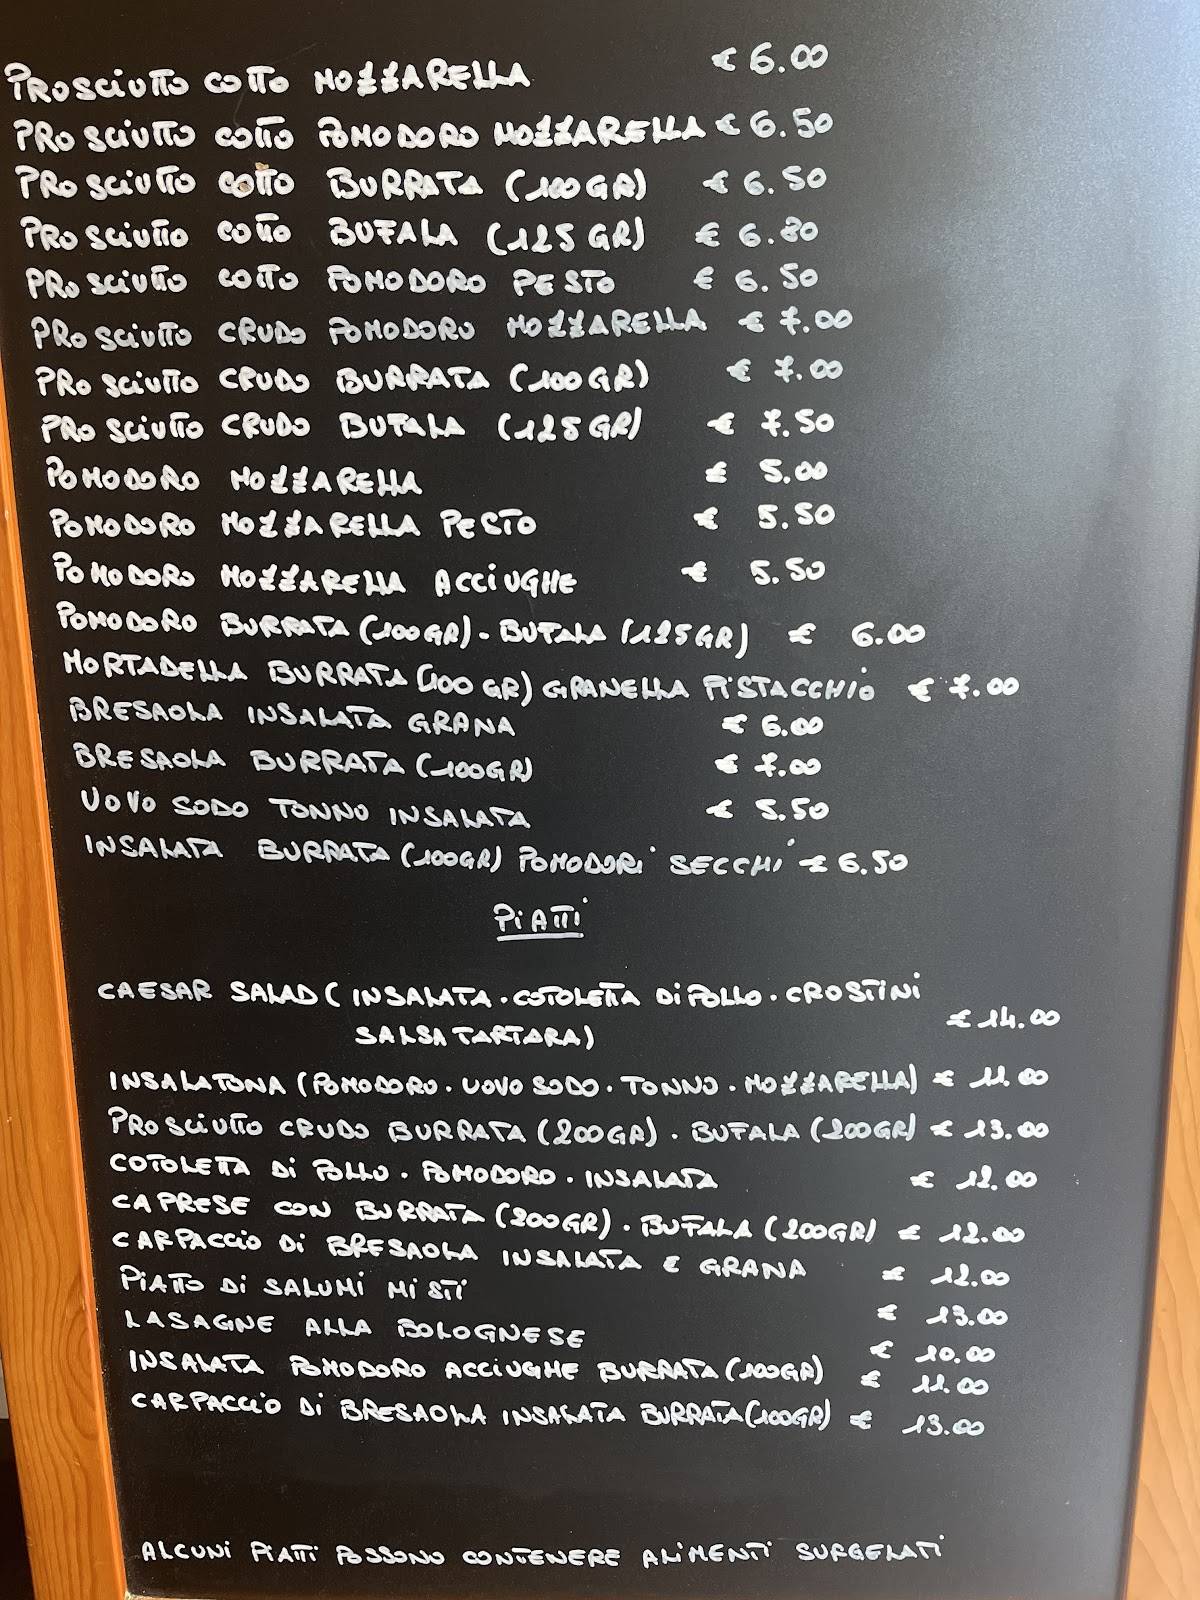 PROSCIUTTO COTTO MOZZARELLA € 6.00
PROSCIUTTO COTTO POMODORO MOZZARELLA € 6.50
PROSCIUTTO COTTO BURRATA (100GR) € 6.50
PROSCIUTTO COTTO BUFALA (125GR) € 6.80
PROSCIUTTO COTTO POMODORO PESTO € 6.50
PROSCIUTTO CRUDO POMODORO MOZZARELLA € 7.00
PROSCIUTTO CRUDO BURRATA (100GR) € 7.00
PROSCIUTTO CRUDO BUFALA (125GR) € 7.50
POMODORO MOZZARELLA € 5.00
POMODORO MOZZARELLA PESTO € 5.50
POMODORO MOZZARELLA ACCIUGHE € 5.50
POMODORO BURRATA (100GR). BUFALA (125GR) € 6.00
MORTADELLA BURRATA (100 GR) GRANELLA PISTACCHIO € 7.00
BRESAOLA INSALATA GRANA € 6.00
BRESAOLA BURRATA (100GR) € 7.00
UOVO SODO TONNO INSALATA € 5.50
INSALATA BURRATA (100GR) POMODORI SECCHI € 6.50
PIATTI
CAESAR SALAD ( INSALATA . COTOLETTA DI POLLO . CROSTINI
SALSA TARTARA) € 14.00
INSALATONA (POMODORO . UOVO SODO . TONNO . MOZZARELLA) € 11.00
PROSCIUTTO CRUDO BURRATA (200GR) . BUFALA (200GR) € 13.00
COTOLETTA DI POLLO . POMODORO . INSALATA € 12.00
CAPRESE CON BURRATA (200GR) . BUFALA (200GR) € 12.00
CARPACCIO DI BRESAOLA INSALATA E GRANA € 12.00
PIATTO DI SALUMI MISTI € 13.00
LASAGNE ALLA BOLOGNESE € 10.00
INSALATA POMODORO ACCIUGHE BURRATA (100GR) € 11.00
CARPACCIO DI BRESAOLA INSALATA BURRATA (100GR) € 13.00
ALCUNI PIATTI POSSONO CONTENERE ALIMENTI SURGELATI